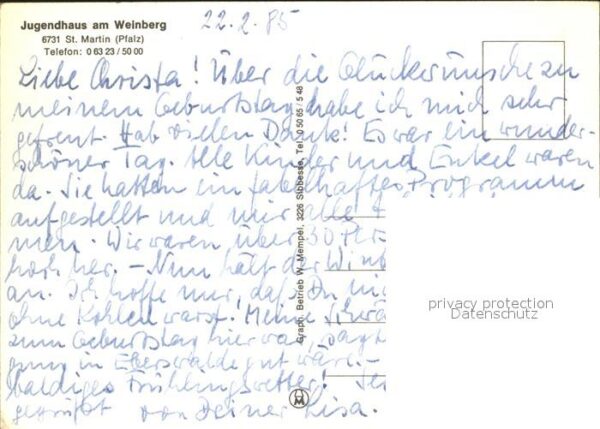 Jugendhaus am Weinberg
6731 St. Martin (Pfalz)
Telefon: 0 63 23 / 50 00
22.2.85
Liebe Christa! Über die Glückwünsche zu
meinem Geburtstag habe ich mich sehr
gefreut. Hab vielen Dank! Es war ein wunder-
schöner Tag. Alle Kinder und Enkel waren
da. Sie hatten ein fabelhaftes Programm
aufgestellt und mir alle
men. Wir waren über 30 Per-
her. - Nun hält der Win
an. Ich hoffe nur, daß Du ni
ohne Kohlen warst. Meine Schwä
zum Geburtstag hier war, sagt
gung in Eberswalde gut wäre. -
baldiges Frühlingswetter! Sei
gegrüßt von Deiner Lisa.
Graph. Betrieb W. Mempel, 3226 Sibbesse, Tel. 0 50 65 / 5 48
privacy protection
Datenschutz